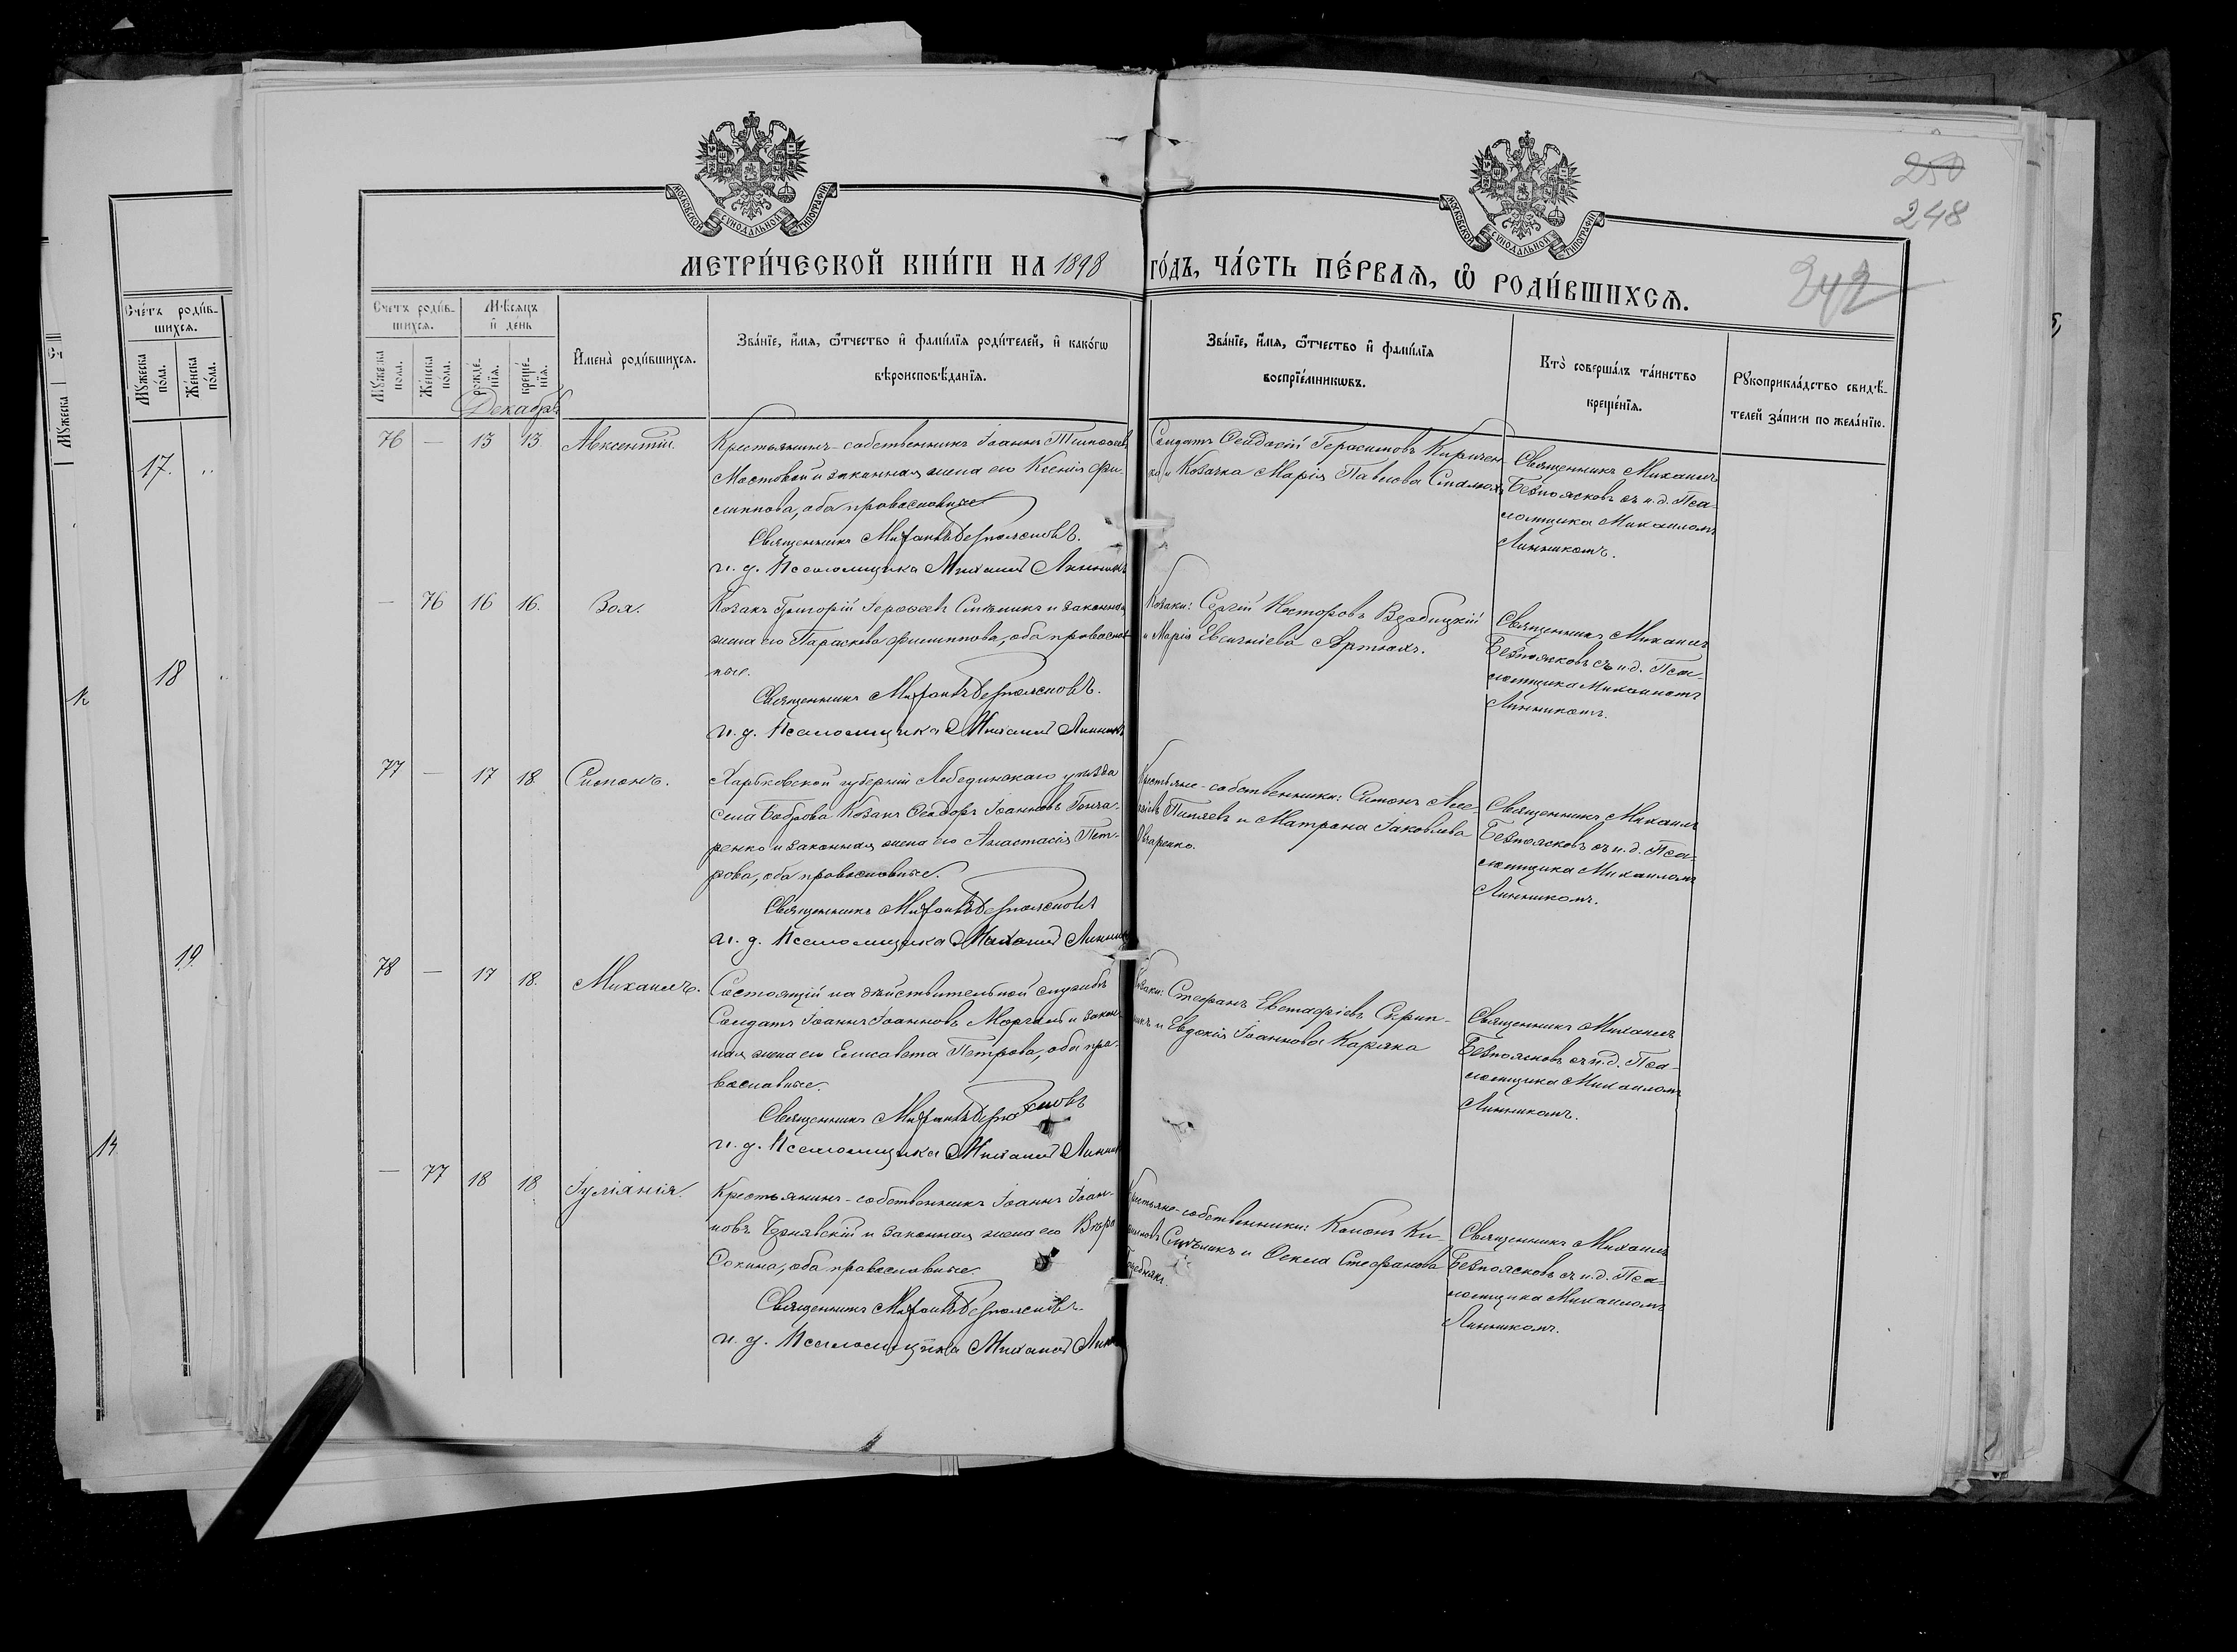 МОСКОВСКОЙ СУНОДАЛЬНОЙ ТИПОГРАФІИ
МОСКОВСКОЙ СУНОДАЛЬНОЙ ТИПОГРАФІИ
250
248
242
МЕТРИ́ЧЕСКОЙ КНИ́ГИ НА 1898 го́дъ, ЧА́СТЬ ПЕ́РВАѦ, Ѽ РОДИ́ВШИХСѦ.
Сче́тъ роди́в-
шихсѧ.
Мꙋ́жеска
по́ла.
Же́нска
по́ла.
Мѣ́сѧцъ
и҆ де́нь
рожде́-
нїѧ.
креще́-
нїѧ.
И҆мена̀ роди́вшихсѧ.
Зва́нїе, и҆́мѧ, ѻ҆́тчество и҆ фами́лїѧ роди́телей, и҆ како́гѡ
вѣроисповѣ́данїѧ.
Зва́нїе, и҆́мѧ, ѻ҆́тчество и҆ фами́лїѧ
воспрїе́мникѡвъ.
Кто̀ соверша́лъ та́инство
креще́нїѧ.
Рꙋкоприкла́дство свидѣ́-
телей за́писи по жела́нїю.
Декабрь
76 — 13 13 Авксентій.
Крестьянинъ-собственникъ Іоаннъ Тимоѳеевъ
Мостовой и законная жена его Ксенія Фи-
липпова, оба православные
Священникъ Михаилъ Безпоясковъ.
и. д. Псаломщика Михаилъ Линникъ
Солдатъ Ѳеодосій Герасимовъ Киричен-
ко и Козачка Марія Павлова
Священникъ Михаилъ
Безпоясковъ съ и. д. Пса-
ломщика Михаиломъ
Линникомъ.
— 76 16 16. Зоя.
Козакъ Григорій Іероѳеевъ и законная
жена его Параскева Филиппова, оба православ-
ные.
Священникъ Михаилъ Безпоясковъ.
и. д. Псаломщика Михаилъ Линникъ
Козаки: Сергій Несторовъ
и Марія Евсигніева Артюхъ.
Священникъ Михаилъ
Безпоясковъ съ и. д. Пса-
ломщика Михаиломъ
Линникомъ.
77 — 17 18 Симонъ.
Харьковской губерніи Лебединскаго уѣзда
села Боброва Козакъ Ѳеодоръ Іоанновъ Гонча-
ренко и законная жена его Анастасія Пет-
рова, оба православные.
Священникъ Михаилъ Безпоясковъ
и. д. Псаломщика Михаилъ Линникъ
Крестьяне-собственники: Симонъ Але-
ксіевъ и Матрона Іаковлева
Овчаренко.
Священникъ Михаилъ
Безпоясковъ съ и. д. Пса-
ломщика Михаиломъ
Линникомъ.
78 — 17 18. Михаилъ.
Состоящій на дѣйствительной службѣ
Солдатъ Іоаннъ Іоанновъ и закон-
ная жена его Елисавета Петрова, оба пра-
вославные.
Священникъ Михаилъ Безпоясковъ
и. д. Псаломщика Михаилъ Линникъ
Козаки: Стефанъ Евстафіевъ Скрип-
никъ и Евдокія Іоаннова Каряка
Священникъ Михаилъ
Безпоясковъ съ и. д. Пса-
ломщика Михаиломъ
Линникомъ.
— 77 18 18 Іуліанія.
Крестьянинъ-собственникъ Іоаннъ Іоан-
новъ Чернявскій и законная жена его Вѣра
Сокина, оба православные.
Священникъ Михаилъ Безпоясковъ.
и. д. Псаломщика Михаилъ Линникъ
Крестьяне-собственники: Кононъ Ки-
и Ѳекла Стефанова
Священникъ Михаилъ
Безпоясковъ съ и. д. Пса-
ломщика Михаиломъ
Линникомъ.
Сче́тъ роди́в-
шихсѧ.
Мꙋ́жеска
по́ла.
Же́нска
по́ла.
Мꙋ́жеска
17.
18
19
14